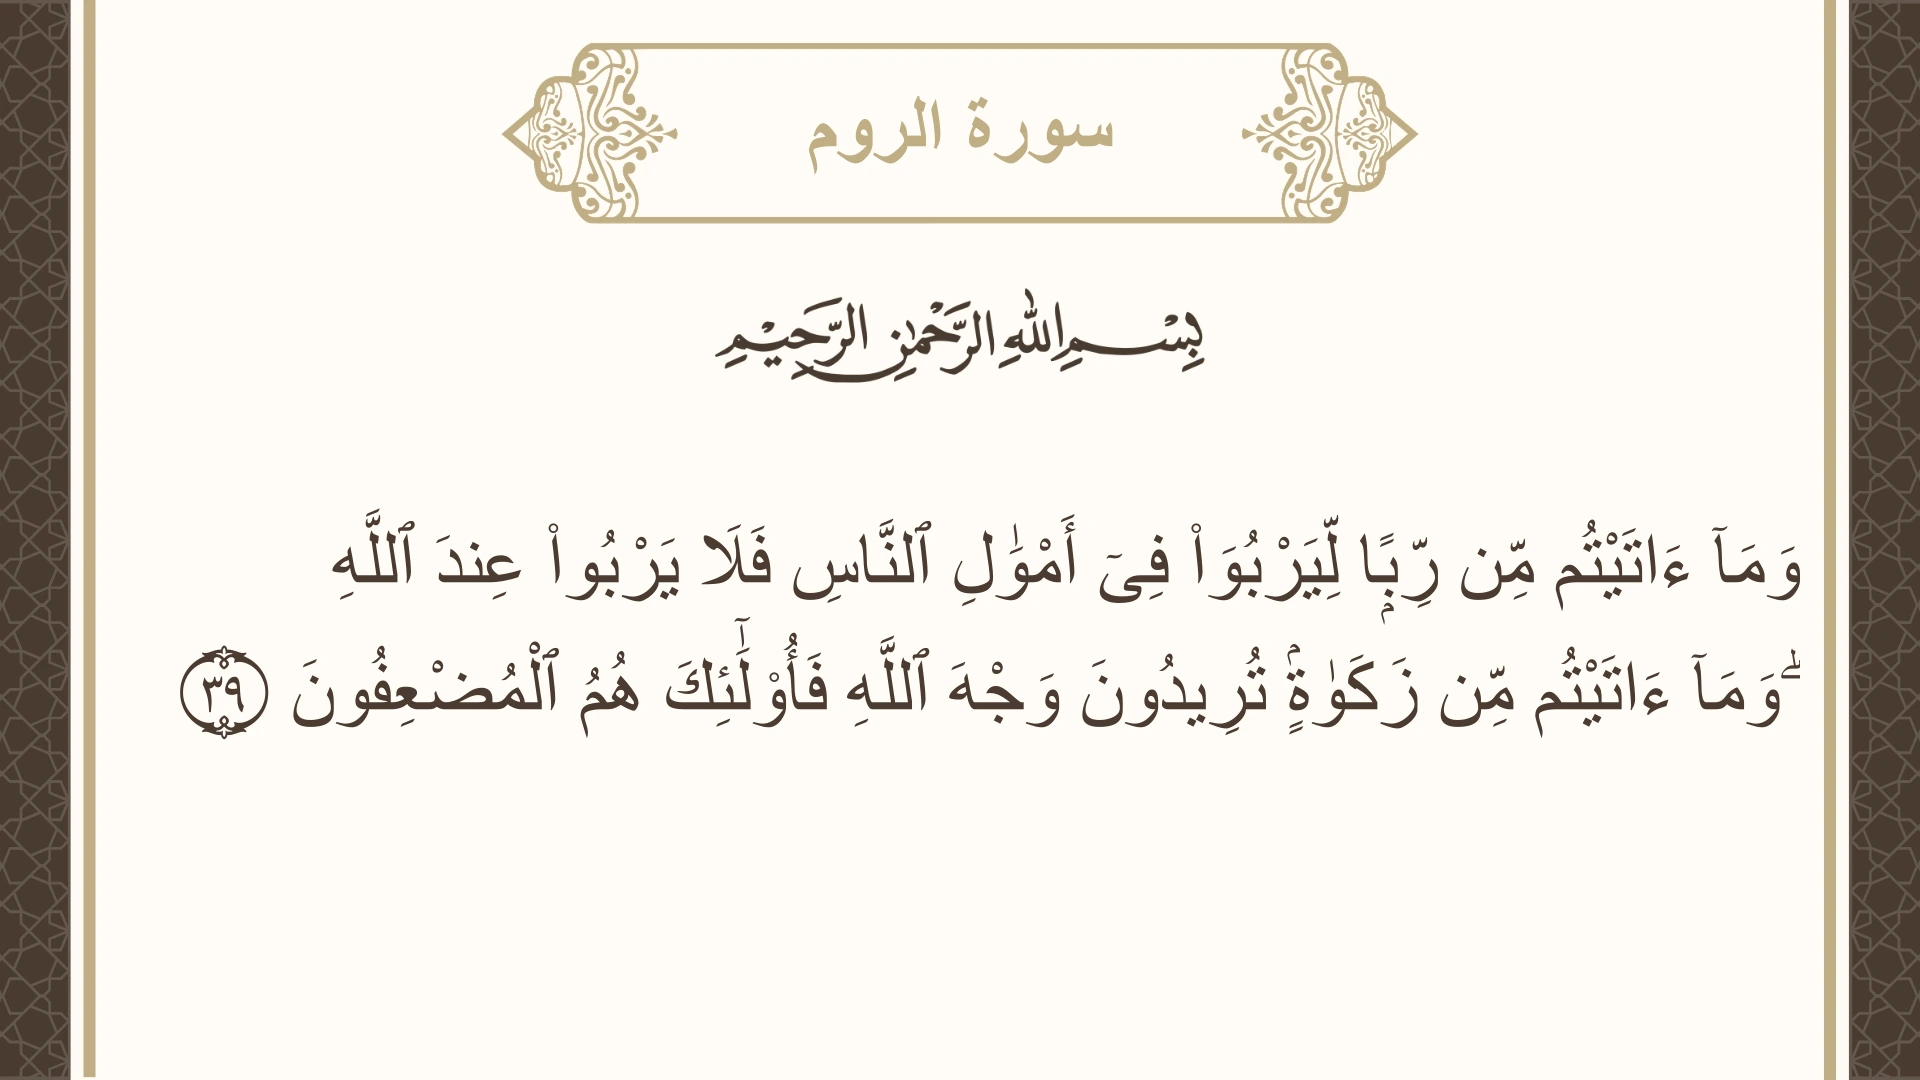 سورة الروم
بِسْمِ اللهِ الرَّحْمٰنِ الرَّحِيْمِ
وَمَآ ءَاتَيْتُم مِّن رِّبًۭا لِّيَرْبُوَا۟ فِىٓ أَمْوَٰلِ ٱلنَّاسِ فَلَا يَرْبُوا۟ عِندَ ٱللَّهِ
ۖ وَمَآ ءَاتَيْتُم مِّن زَكَوٰةٍۢ تُرِيدُونَ وَجْهَ ٱللَّهِ فَأُو۟لَٰٓئِكَ هُمُ ٱلْمُضْعِفُونَ ٣٩